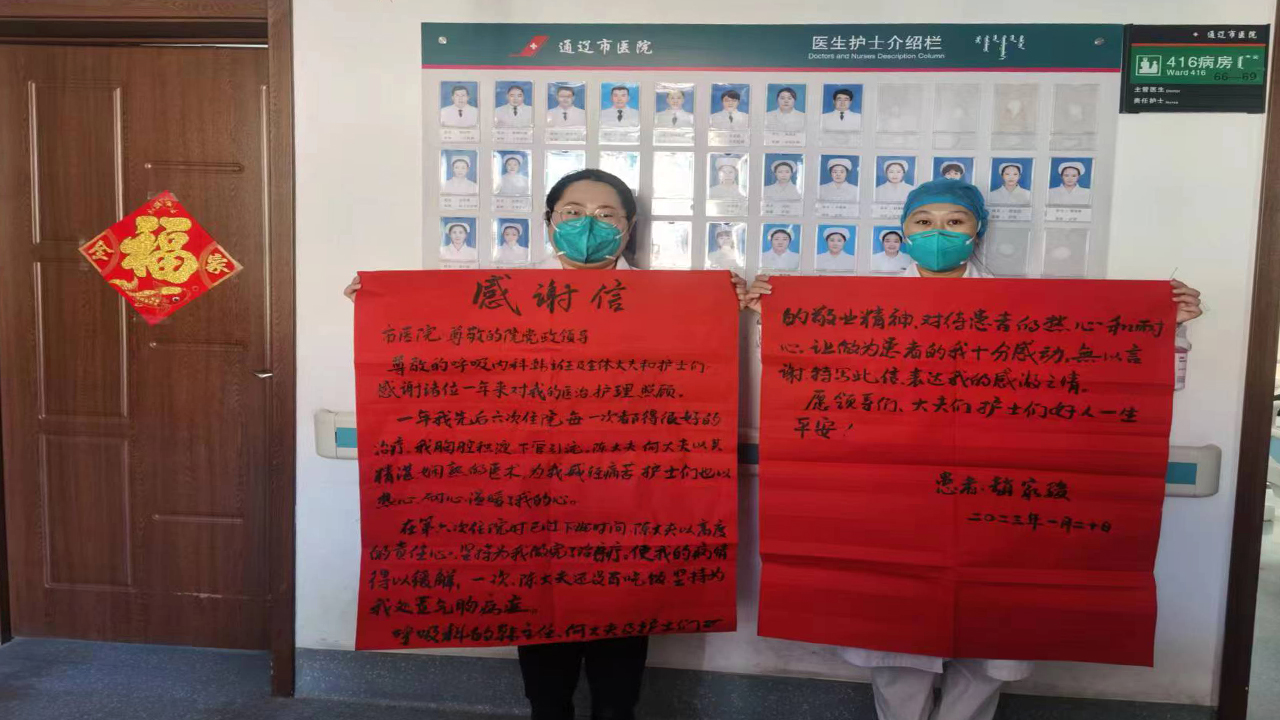 通辽市医院
医生护士介绍栏
Doctors and Nurses Description Column
通辽市医院
416病房
Ward 416
66—69
主管医生 Doctor
责任护士 Nurse
福
全家
感谢信
市医院 尊敬的院党政领导
尊敬的呼吸内科韩主任及全体大夫和护士们
感谢诸位一年来对我的医治护理 照顾。
一年我先后六次住院，每一次都得很好的
治疗，我胸腔积液下管引流，陈大夫何大夫以其
精湛娴熟的医术，为我减轻痛苦 护士们也以
热心、细心温暖了我的心。
在第六次住院时已过下班时间，陈大夫以高度
的责任心，坚持为我做完了治疗，使我的病情
得以缓解，一次，陈大夫还没有吃饭坚持为
我处置气胸病症。
呼吸科的韩主任、何大夫及护士们
的敬业精神、对待患者的热心和耐
心，让做为患者的我十分感动，無以言
谢，特写此信，表达我的感激之情。
愿领导们、大夫们护士们好人一生
平安！
患者：
二〇二三年一月二十日